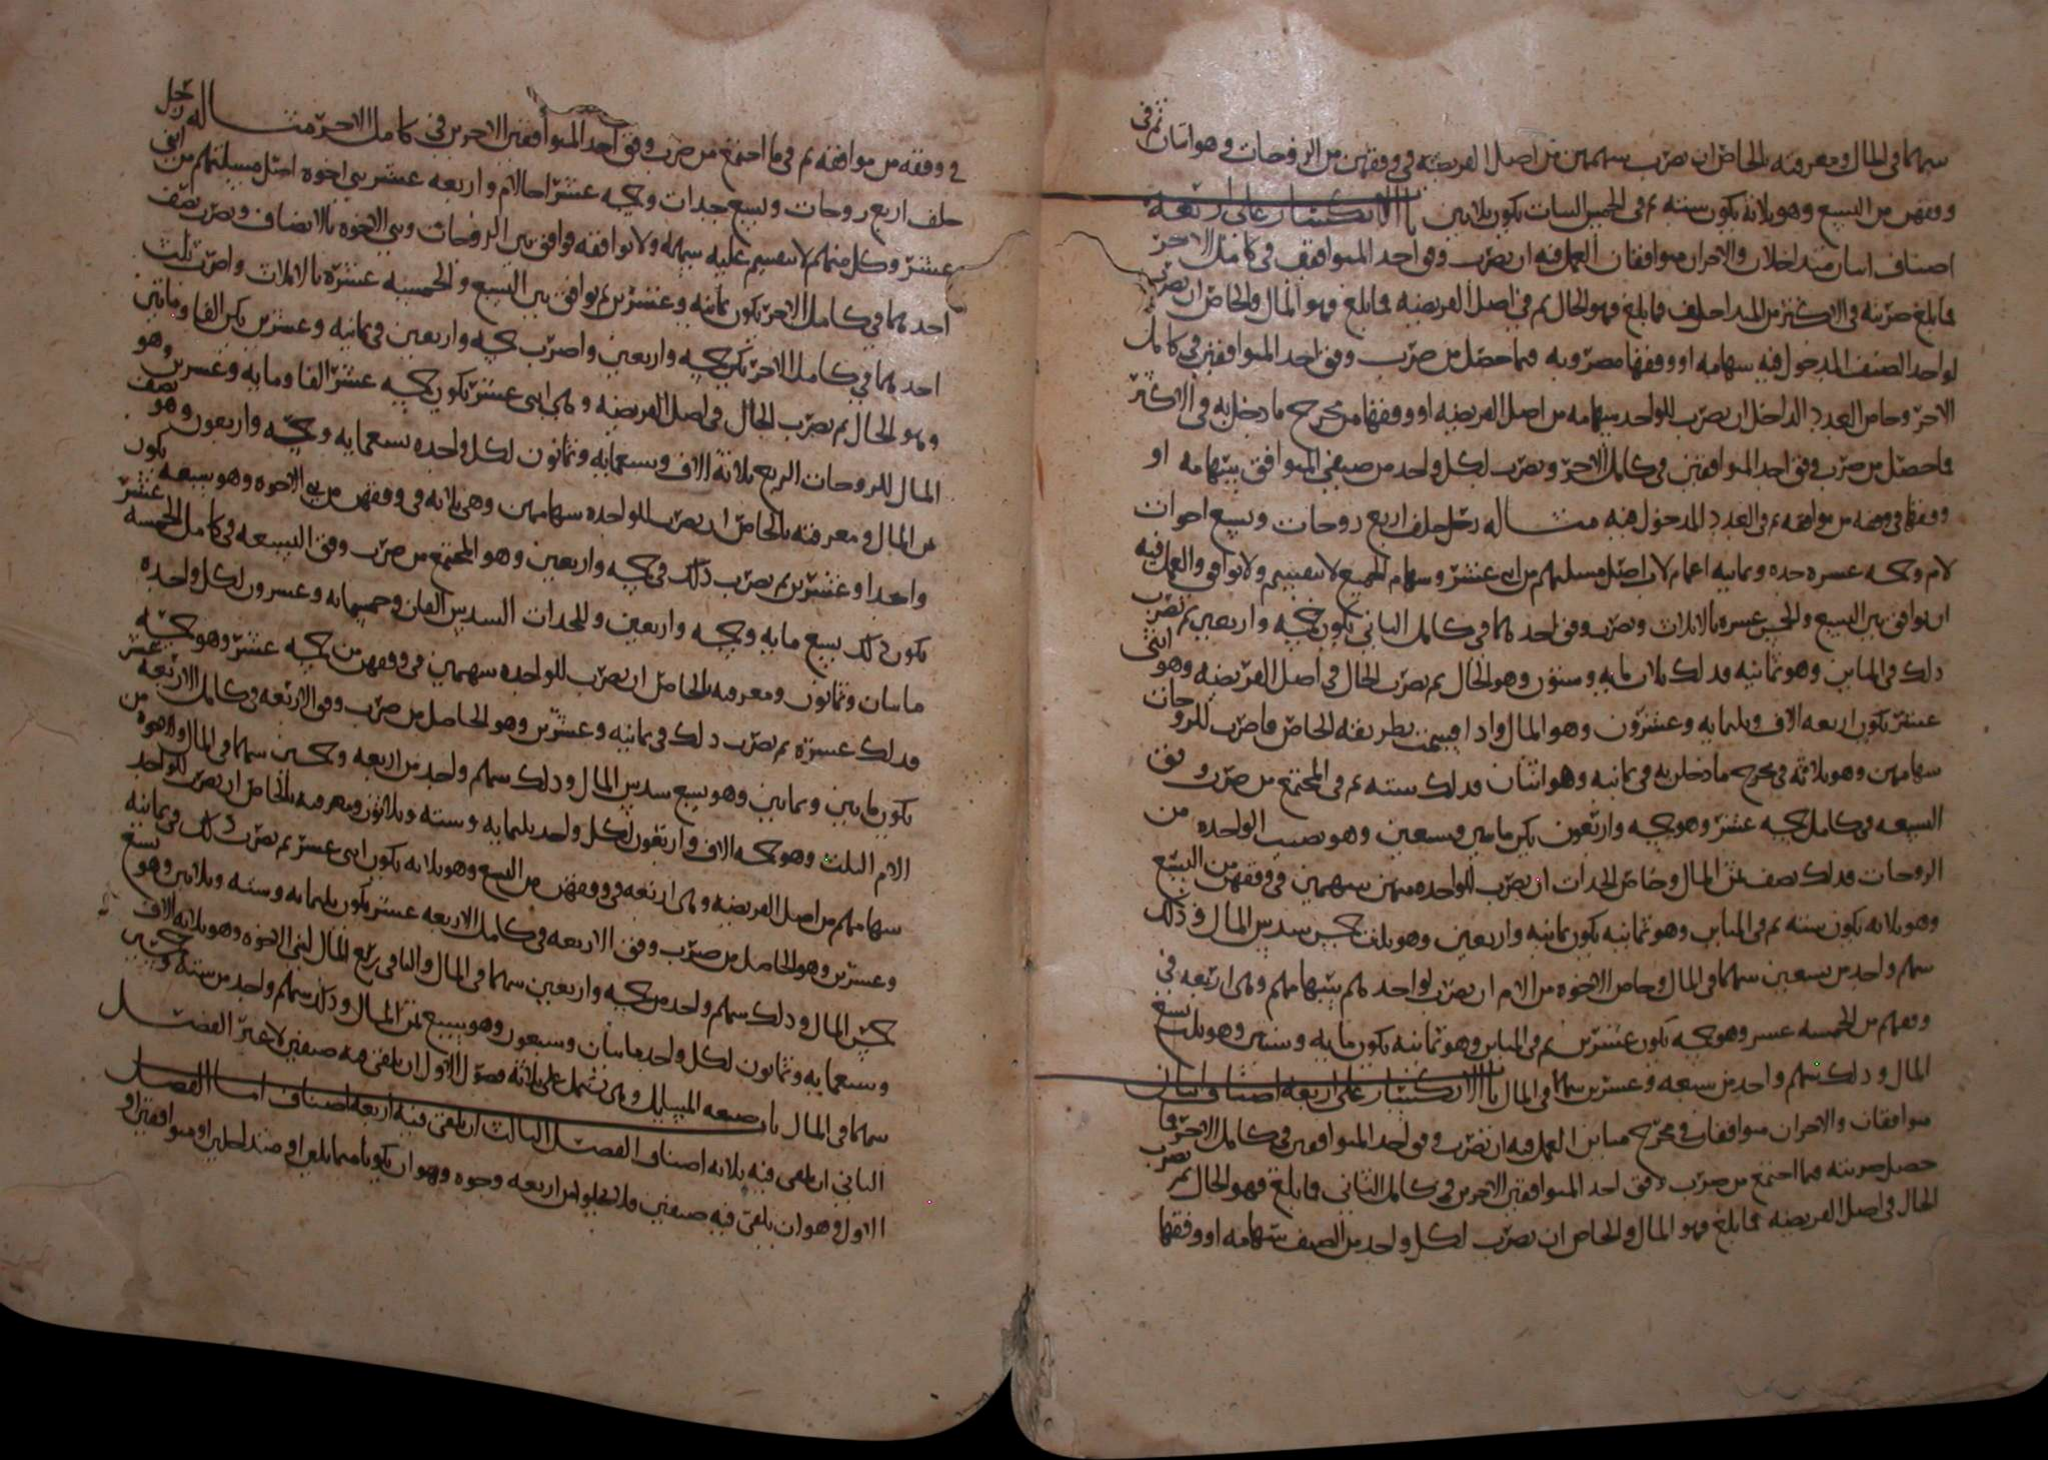 سهما في المال ومعرفته بالخاص ان تضرب سهمهن من اصل الفريضه في وفقهن من الزوجات وهو اثنان ثم في
وفقهن من التسع وهو ثلاثة يكون سته ثم في الخمس البنات يكون ثلاثين باب الانكسار على اربعة
اصناف اثنان متداخلان والاخران متوافقان العمل فيه ان تضرب وفق احد المتوافقين في كامل الاخر
فما بلغ ضربته في الاكثر من المتداخلين فما بلغ فهو الحال ثم في اصل الفريضه فما بلغ فهو المال والخاص ان تضرب
لواحد الصنف المدخول فيه سهامه او وفقها مضروبه فيما حصل من ضرب وفق احد المتوافقين في كامل
الاخر وخاص العدد الداخل ان تضرب للواحد سهامه من اصل الفريضه او وفقها من مخرج ما دخل به في الاكثر
فما حصل من ضرب وفق احد المتوافقين في كامل الاخر وتضرب لكل واحد من صنفي المتوافق سهامه او
وفقها في وفقه من موافقه ثم في العدد المدخول فيه مثاله رجل خلف اربع زوجات وتسع اخوات
لام وخمسه عشره جده وثمانيه اعمام لاب اصل مسئلتهم من اثني عشر وسهام الجميع لا تنقسم ولا توافق والعمل فيه
ان توافق بين التسع والخمس عشره بالاثلاث وتضرب وفق احدهما في كامل الثاني يكون خمسه واربعين ثم تضرب
ذلك في المباين وهو ثمانيه فذلك ثلاث مايه وستون وهو الحال ثم تضرب الحال في اصل الفريضه وهو اثنى
عشر يكون اربعه الاف وثلثمايه وعشرون وهو المال واذا قسمت بطريقه الخاص فاضرب للزوجات
سهامهن وهو ثلاثه في مخرج ما دخلن به في ثمانيه وهو اثنان فذلك سته ثم في المجتمع من ضرب وفق
التسعه في كامل خمسه عشر وهو خمسه واربعون يكن مايتين وسبعين وهو نصيب الواحده من
الزوجات فذلك نصف ثمن المال وخاص الجدات ان تضرب للواحده منهن سهمين في وفقهن من التسع
وهو ثلاثه يكون سته ثم في المباين وهو ثمانيه يكون ثمانيه واربعين وهو ثلث خمس سدس المال وذلك
سهم واحد من تسعين سهما في المال وخاص الاخوه من الام ان تضرب لواحدهم سهامهم وهي اربعه في
وفقهم من الخمسه عشر وهو خمسه يكون عشرين ثم في المباين وهو ثمانيه يكون مايه وستين وهو ثلث تسع
المال وذلك سهم واحد من سبعه وعشرين سهما في المال باب الانكسار على اربعه اصناف اثنان
متوافقان والاخران متوافقان في مخرج مباين العمل فيه ان تضرب وفق احد المتوافقين في كامل الاخر فما
حصل ضربته فيما اجتمع من ضرب وفق احد المتوافقين الاخرين في كامل الثاني فما بلغ فهو الحال ثم تضرب
الحال في اصل الفريضه فما بلغ فهو المال والخاص ان تضرب لكل واحد من الصنف سهامه او وفقها
في وفقه من موافقه ثم في ما اجتمع من ضرب وفق احد المتوافقين الاخرين في كامل الاخر مثاله رجل
خلف اربع زوجات وتسع جدات وخمسه عشر اخا لام واربعه عشر بني اخوه اصل مسئلتهم من اثني
عشر وكل منهم لا تنقسم عليه سهمه ولا توافقه فوافق بين الزوجات وبني الاخوه بالانصاف وتضرب نصف
احدهما في كامل الاخر يكون ثمانيه وعشرين ثم توافق بين التسع والخمسه عشره بالاثلاث واضرب ثلث
احدهما في كامل الاخر يكن خمسه واربعين واضرب خمسه واربعين في ثمانيه وعشرين يكن الفا ومايتين
وهو الحال ثم تضرب الحال في اصل الفريضه وهي اثنى عشر يكون خمسه عشر الفا ومايه وعشرين وهو
المال للزوجات الربع ثلاثة الاف وسبعمايه وثمانون لكل واحده تسعمايه وخمسه واربعون وهو نصف
ثمن المال ومعرفته بالخاص ان تضرب للواحده سهامهن وهي ثلاثه في وفقهن من بني الاخوه وهو سبعه يكون
واحدا وعشرين ثم تضرب ذلك في خمسه واربعين وهو المجتمع من ضرب وفق التسعه في كامل الخمسه عشر
يكون ذلك تسع مايه وخمسه واربعين وللجدات السدس الفان وخمسمايه وعشرون لكل واحده
مايتان وثمانون ومعرفته بالخاص ان تضرب للواحده سهمين في وفقهن من خمسه عشر وهو خمسه
فذلك عشره ثم تضرب ذلك في ثمانيه وعشرين وهو الحاصل من ضرب وفق الاربعه في كامل الاربعه عشر
يكون مايتين وثمانين وهو تسع سدس المال وذلك سهم واحد من اربعه وخمسين سهما في المال والاخوه من
الام الثلث وهو خمسه الاف واربعون لكل واحد ثلثمايه وسته وثلاثون ومعرفته بالخاص ان تضرب للواحد
سهامهم من اصل الفريضه وهي اربعه في وفقهن من التسع وهو ثلاثه يكون اثنى عشر ثم تضرب ذلك في ثمانيه
وعشرين وهو الحاصل من ضرب وفق الاربعه في كامل الاربعه عشر يكون ثلثمايه وسته وثلاثين وهو تسع
خمس المال وذلك سهم واحد من خمسه واربعين سهما في المال والباقي ربع المال لبني الاخوه وهو ثلاثه الاف
وسبعمايه وثمانون لكل واحد مايتان وسبعون وهو سبع ثمن المال وذلك سهم واحد من سته وخمسين
سهما في المال باب صنعه المسايل وهي تشتمل على ثلاثة فصول الاول ان يلقى فيه صنفين لا غير الفصل
الثاني ان تلقى فيه ثلاثه اصناف الفصل الثالث ان تلقى فيه اربعه اصناف اما الفصل
الاول وهو ان يلقى فيه صنفين فلا يخلو من اربعه وجوه وهو ان يكونا متماثلين او متداخلين او متوافقين او